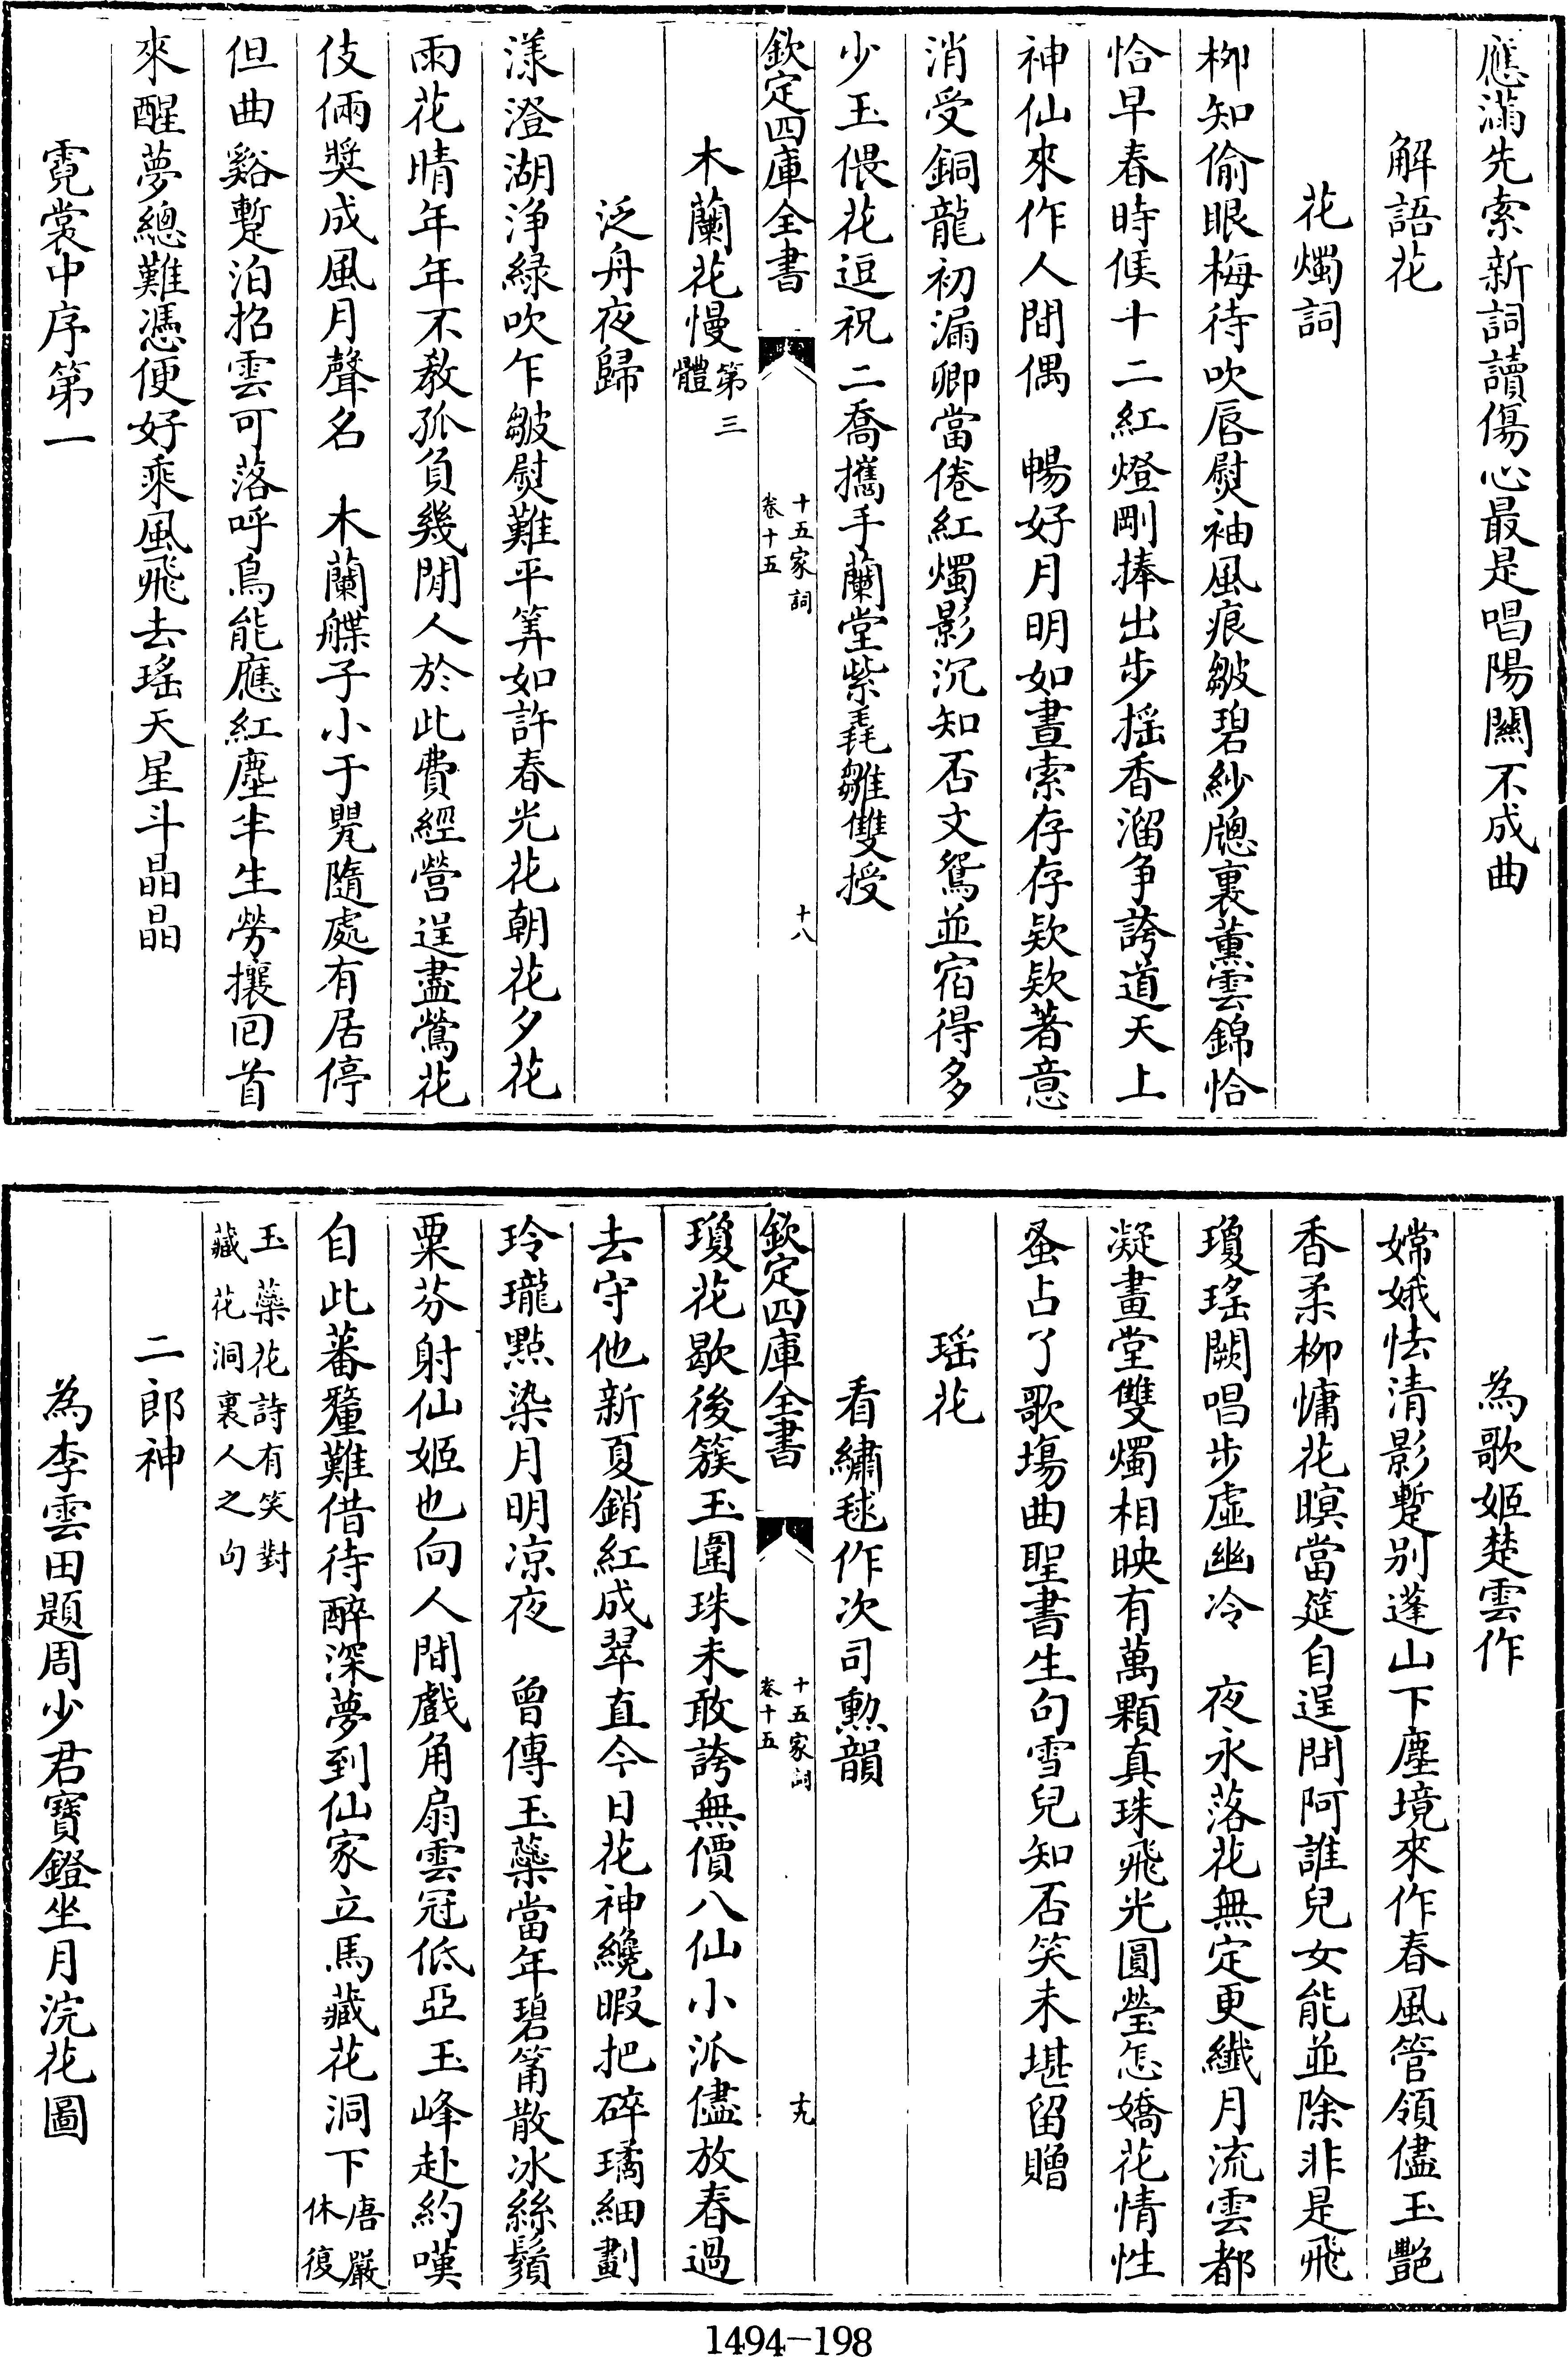 應滿先索新詞讀傷心最是唱陽關不成曲
解語花
花燭詞
柳知偷眼梅待吹唇熨袖風痕皺碧紗牕裏薰雲錦恰
恰早春時候十二紅燈剛捧出步摇香溜争誇道天上
神仙來作人間偶　暢好月明如晝索存存存欵欵著意
消受銅龍初漏卿當倦紅燭影沉知否文鴛並宿得多
少玉偎花逗祝二喬攜手蘭堂紫毳雛雙授
欽定四庫全書
十五家詞
卷十五
十八
木蘭花慢第三體
泛舟夜歸
漾澄湖浄緑吹乍皺熨難平筭如許春光花朝花夕花
雨花晴年年不教孤負幾閒人於此費經營逞盡鶯花
伎倆奬成風月聲名　木蘭艓子小于鳧隨處有居停
但曲谿蹔泊招雲可落呼鳥能應紅塵半生勞攘囘首
來醒夢總難憑便好乘風飛去瑤天星斗晶晶
霓裳中序第一
為歌姬楚雲作
嫦娥怯清影蹔别蓬山下塵境來作春風管領儘玉艷
香柔柳慵花暝當筵自逞問阿誰兒女能並除非是飛
瓊瑤闕唱步虛幽冷　夜永落花無定更纖月流雲都
凝畫堂雙燭相映有萬顆真珠飛光圓瑩怎嬌花情性
蚤占了歌塲曲聖書生句雪兒知否笑未堪留贈
瑶花
看繡毬作次司勲韻
欽定四庫全書
十五家詞
卷十五
十九
瓊花歇後簇玉圍珠未敢誇無價八仙小派儘放春過
去守他新夏銷紅成翠直今日花神纔暇把碎璚細劃
玲瓏點染月明凉夜　曾傳玉蘂當年碧筩散冰絲鬚
粟芬射仙姬也向人間戲角扇雲冠低亞玉峰赴約嘆
自此蕃釐難借待醉深夢到仙家立馬藏花洞下唐嚴休復
玉蘂花詩有笑對藏花洞裏人之句
二郎神
為李雲田題周少君寶鐙坐月浣花圖
1494-198